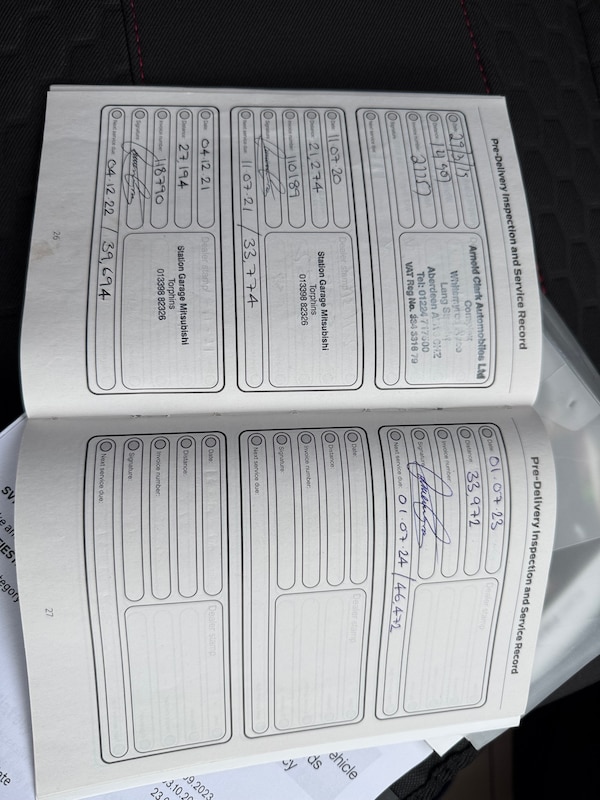 Pre-Delivery Inspection and Service Record
Date:
29/3/19
Distance:
Invoice number:
21157
Signature:
Next service due:
Arnold Clark Automobiles Ltd
Aberdeen
Tel: 01224
VAT Reg No.
Date: 11.07.20
Distance: 21,274
Invoice number: 110189
Signature:
Next service due: 11.07.21 / 33,774
Station Garage Mitsubishi
Torphins
013398 82326
Date: 04.12.21
Distance: 27,194
Invoice number: 118790
Signature:
Next service due: 04.12.22 / 39,694
Dealer stamp
Station Garage Mitsubishi
Torphins
013398 82326
26
Pre-Delivery Inspection and Service Record
Date: 01.07.23
Distance: 33972
Invoice number:
Signature:
Next service due: 01.07.24 / 46,472
Dealer stamp
Date:
Distance:
Invoice number:
Signature:
Next service due:
Dealer stamp
Date:
Distance:
Invoice number:
Signature:
Next service due:
Dealer stamp
27
ehicle
ds